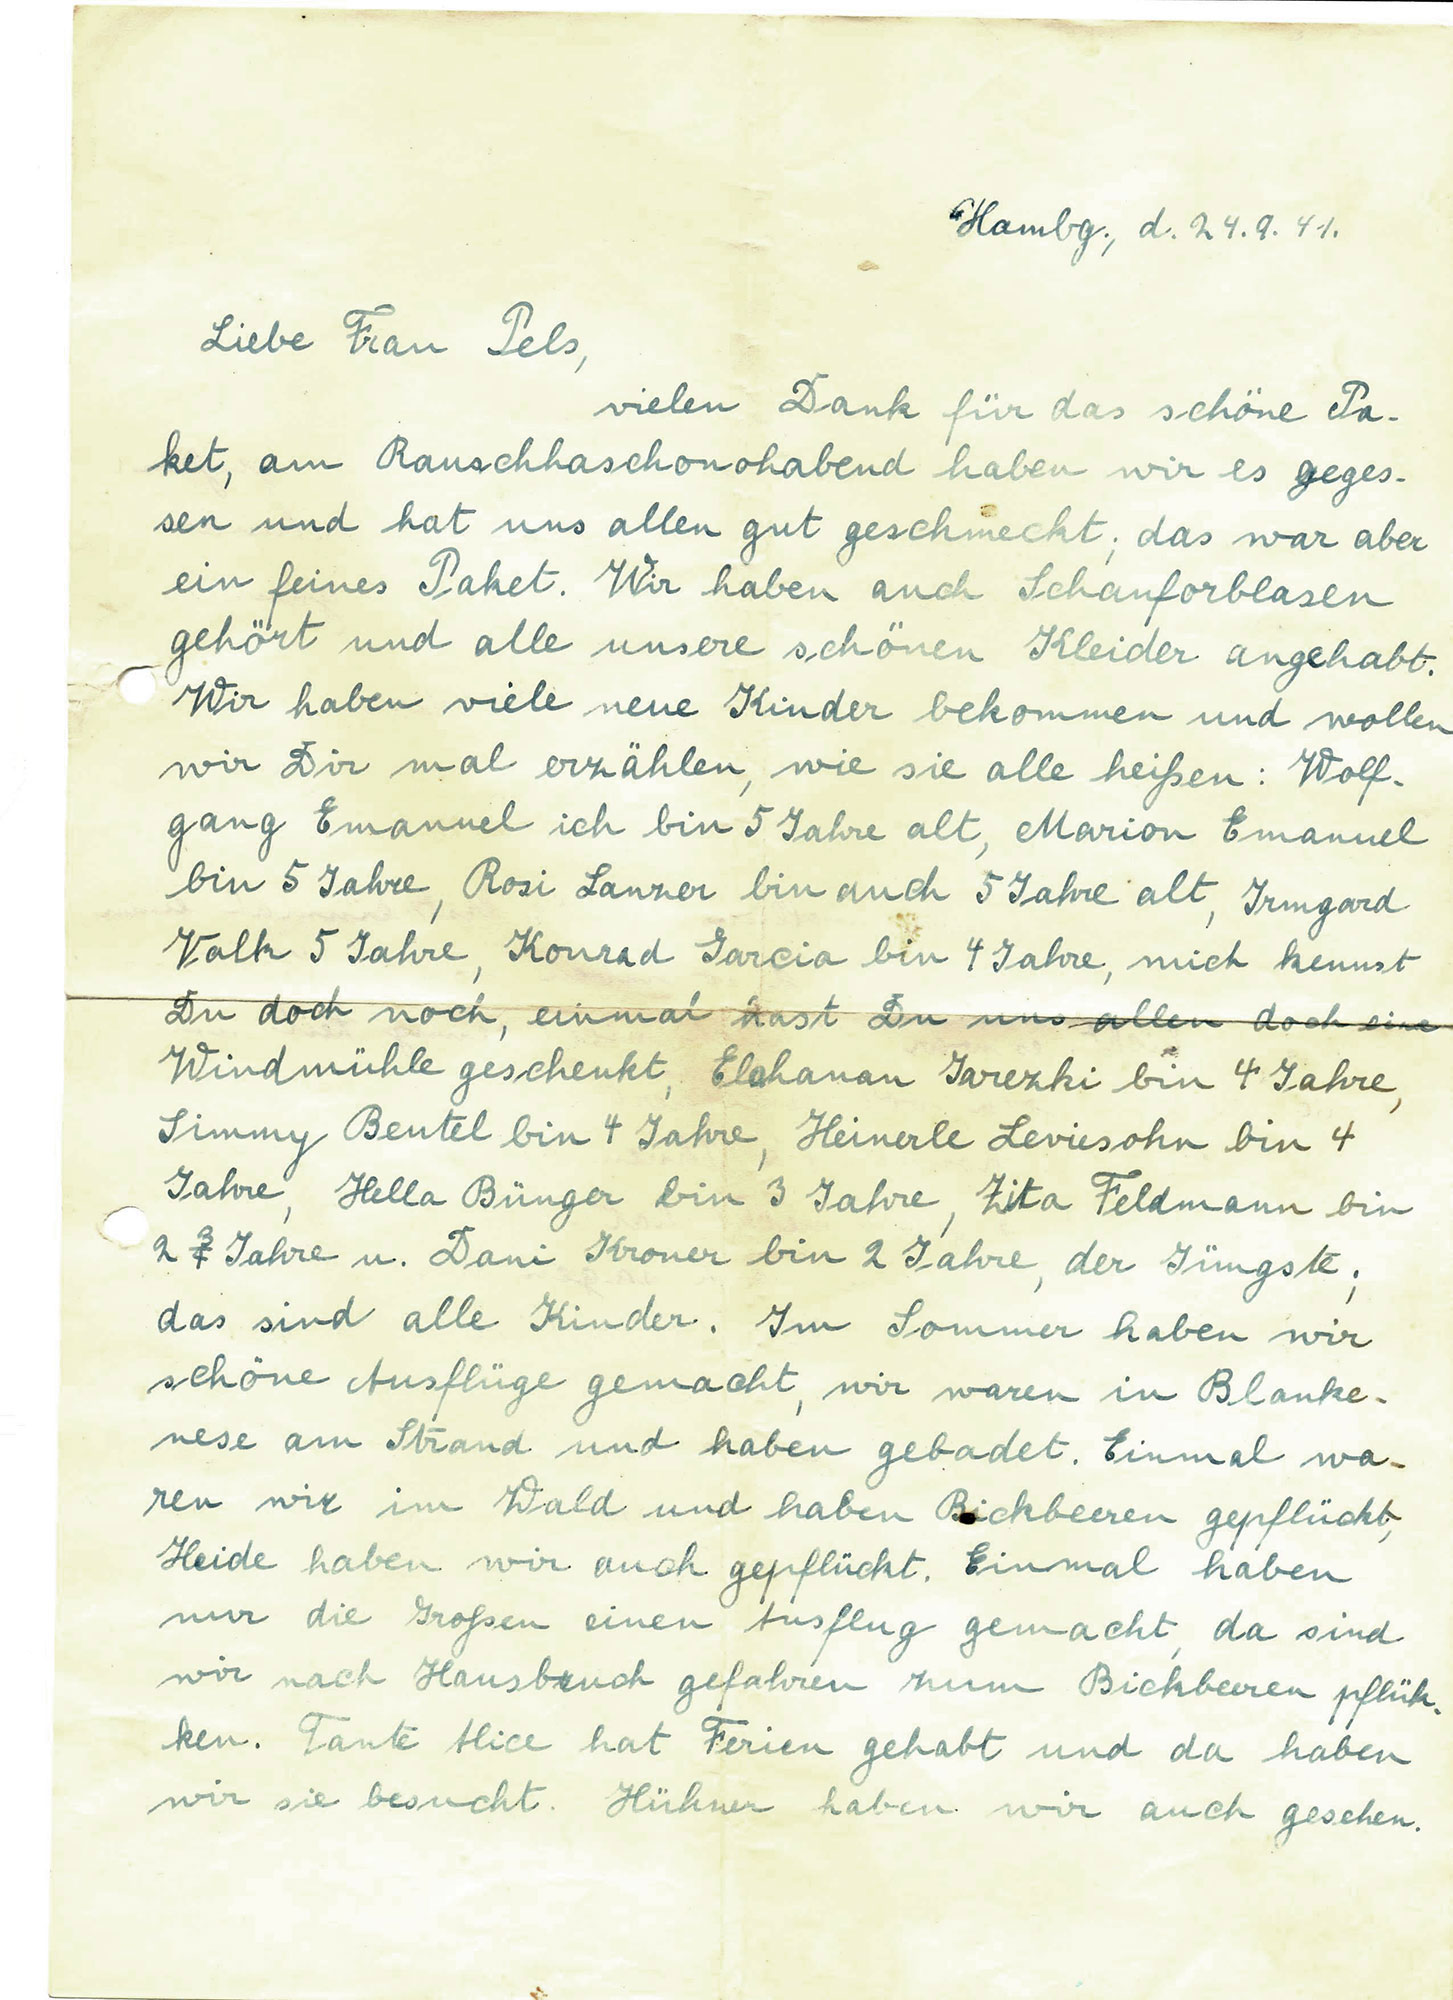 Hambg., d. 24.9.41.
Liebe Frau Pels,
vielen Dank für das schöne Pa-
ket, am Rauschhaschonohabend haben wir es geges-
sen und hat uns allen gut geschmeckt; das war aber
ein feines Paket. Wir haben auch Schauforblasen
gehört und alle unsere schönen Kleider angehabt.
Wir haben viele neue Kinder bekommen und wollen
wir Dir mal erzählen, wie sie alle heißen: Wolf-
gang Emanuel ich bin 5 Jahre alt, Marion Emanuel
bin 5 Jahre, Rosi Lanzer bin auch 5 Jahre alt, Irmgard
Valk 5 Jahre, Konrad Garcia bin 4 Jahre, mich kennst
Du doch noch, einmal hast Du uns allen doch eine
Windmühle geschenkt, Elchanan Jarezki bin 4 Jahre,
Simmy Beutel bin 4 Jahre, Heinerle Leviesohn bin 4
Jahre, Hella Bünger bin 3 Jahre, Zita Feldmann bin
2 3/4 Jahre u. Dani Kroner bin 2 Jahre, der Jüngste;
das sind alle Kinder. Im Sommer haben wir
schöne Ausflüge gemacht, wir waren in Blanke-
nese am Strand und haben gebadet. Einmal wa-
ren wir im Wald und haben Bickbeeren gepflückt,
Heide haben wir auch gepflückt. Einmal haben
nur die Großen einen Ausflug gemacht, da sind
wir nach Hausbruch gefahren zum Bickbeeren pflük-
ken. Tante Alice hat Ferien gehabt und da haben
wir sie besucht. Hühner haben wir auch gesehen.